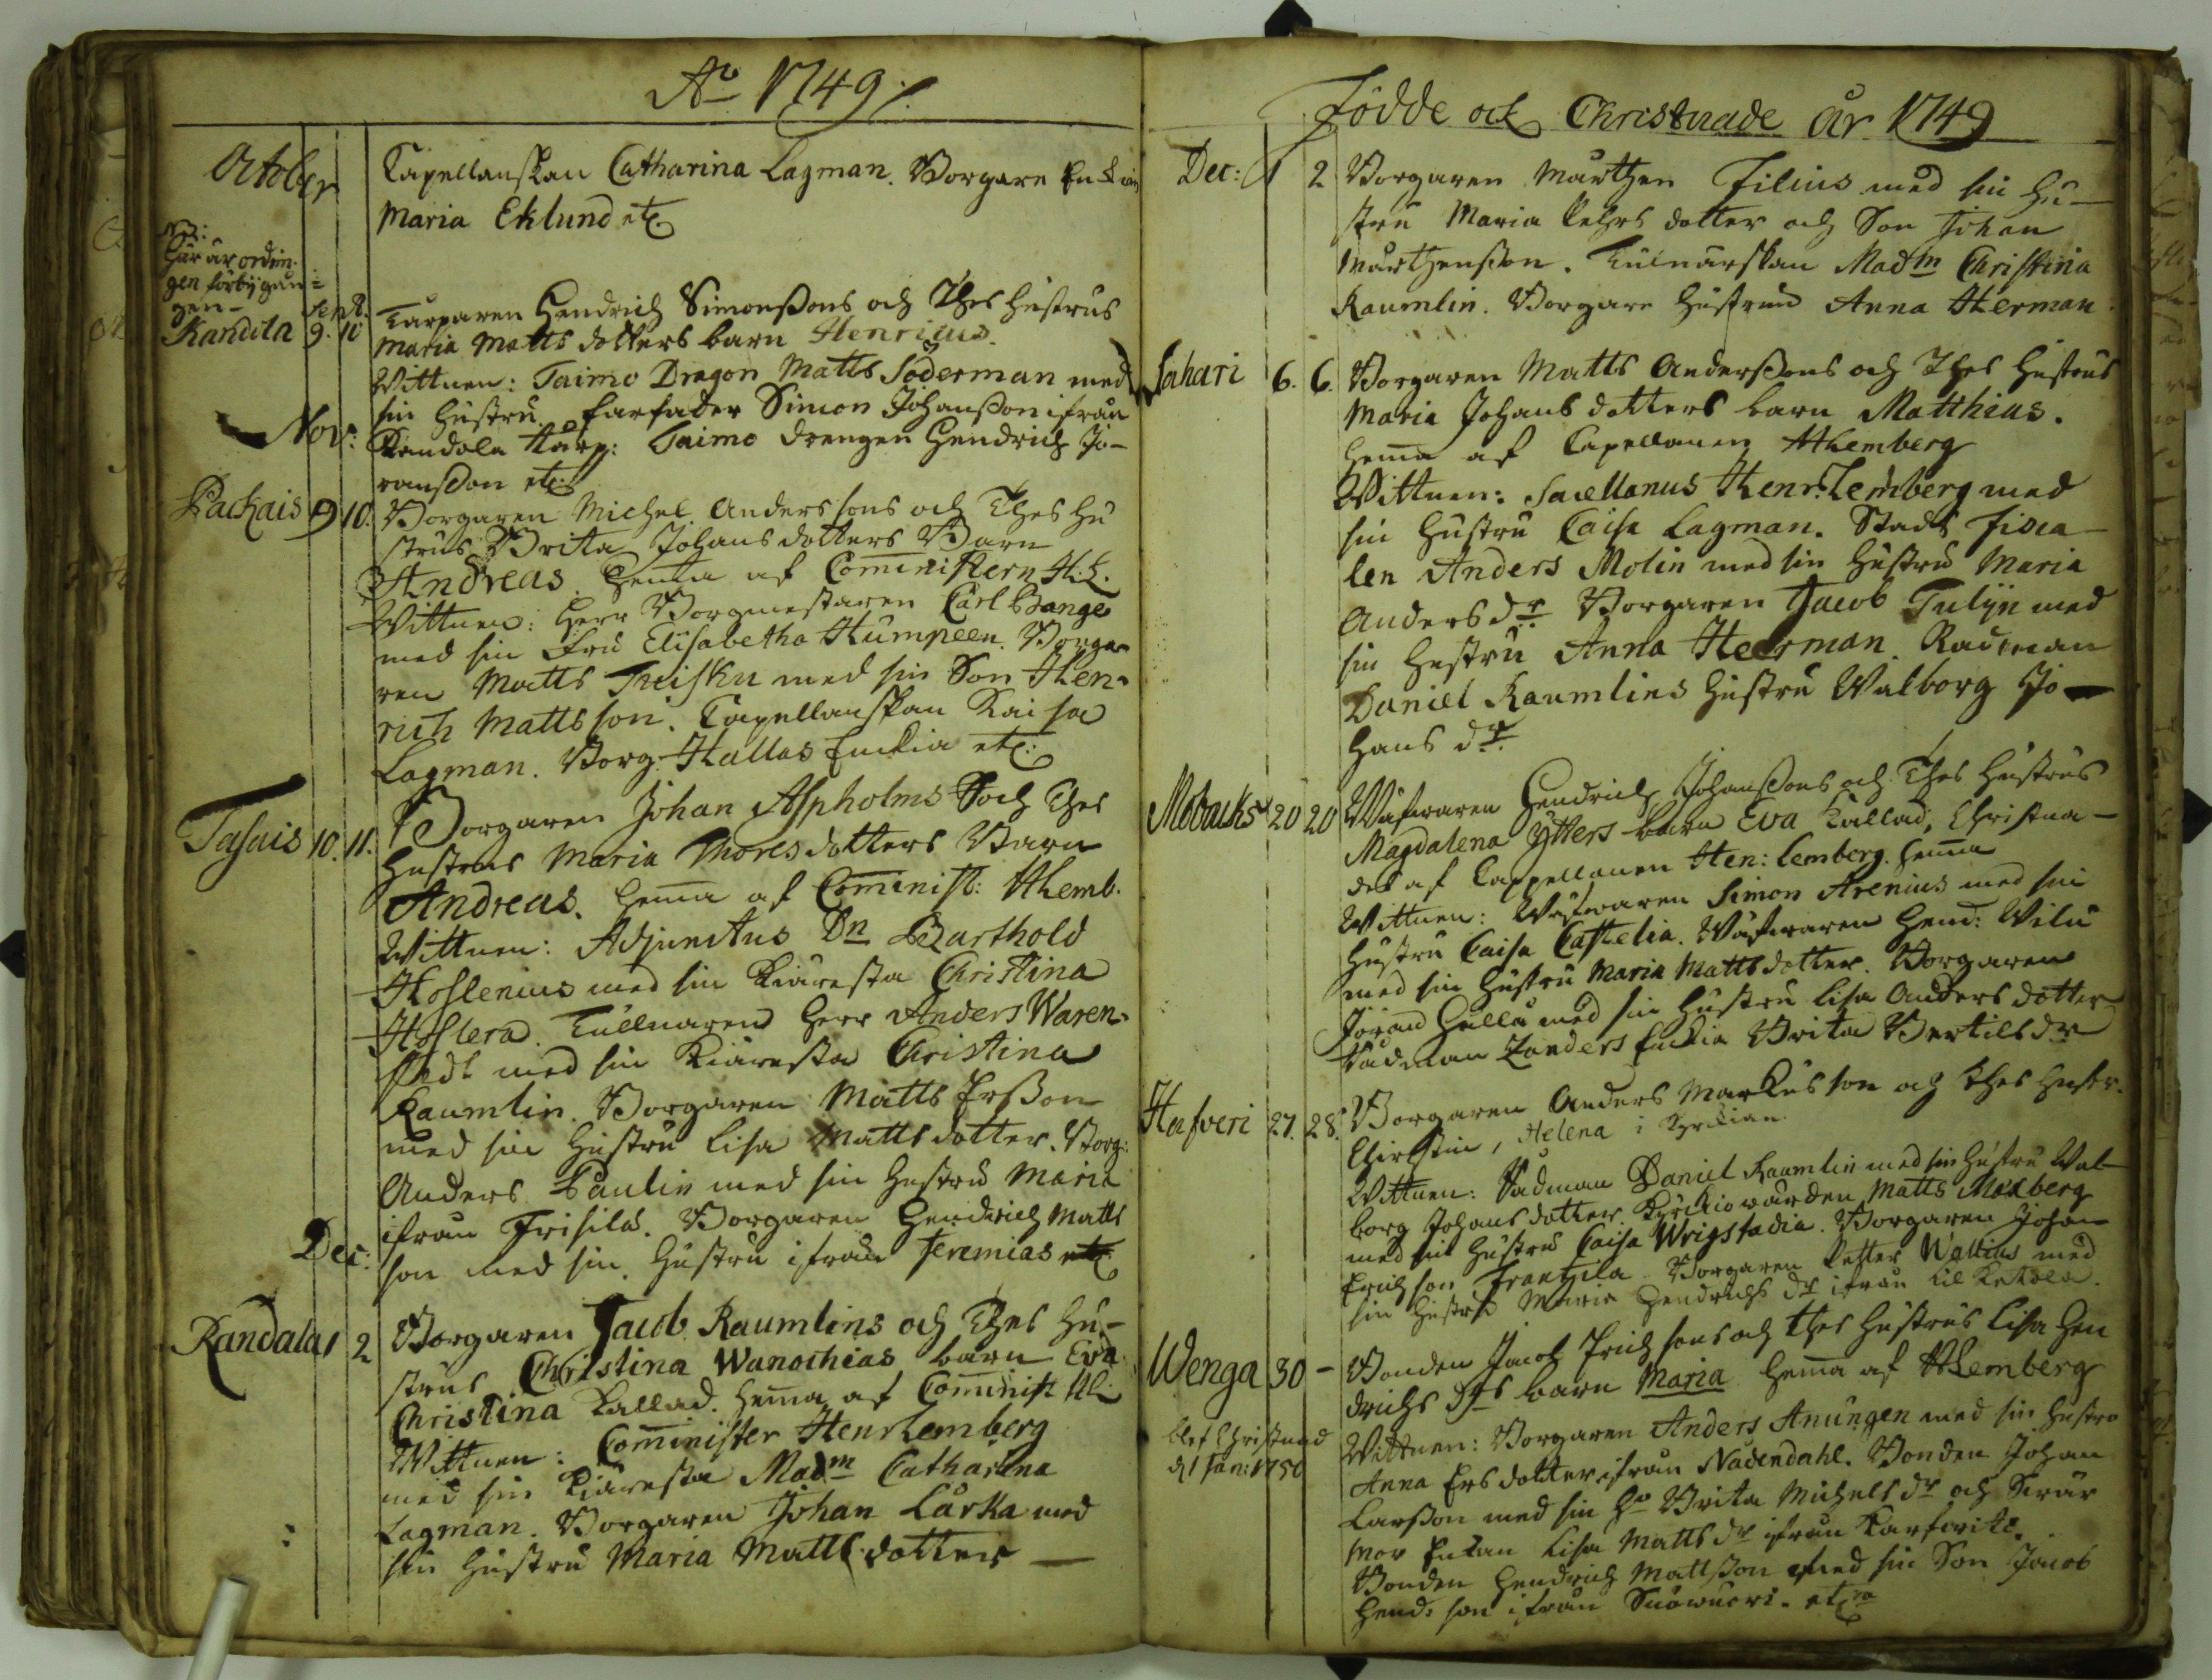 Ao 1749
October
Capellanskan Catharina Lagman. Borgare Enkian
Maria Eklund etc
NB:
Här är ordnin-
gen förbijgån=
gen-
Sept.
Kandola 9. 10
Torparen Hendrich Simonßons och Thes Hustrus
Maria Matts dotters barn Henricus.
Vittnen: Taimo Dragon Matts Söderman med
sin Hustru. Farfader Simon Johanßon ifrån
Nov:
Kandola torp: Taimo drengen Hendrich Jö-
ranßon etc
Packais 9 10. Borgaren Michel Anderssons och Thes Hu
strus Brita Johans dotters Barn
Andreas. Hemma af Comministern H: L.
Vittnen: Herr Borgmestaren Carl Bange
med sin Fru Elisabetha Humpeen. Borga-
ren Matts Treisku med sin Son Hen-
rich Mattsson. Capellanskan Kaisa
Lagman. Borg. Hallas Enckia etc:
Tasais 10. 11. Borgaren Johan Aspholms och Thes
Hustrus Maria Thores dotters Barn
Andreas. Hemma af Comminist: HLemb.
Vittnen: Adjunctus Dn Barthold
Hoslenius med sin Kiäresta Christina
Hoslera. Tullnaren Herr Anders Waren-
stedt med sin Kiäresta Christina
Raumlin. Borgaren Matts Erßon
med sin Hustru Lisa Matts dotter. Borg:
Anders Paulin med sin Hustru Maria
ifrån Frisila. Borgaren Hendrich Matts
Dec:
son med sin Hustru ifrån Jeremias etc
Kandala 1 2 Borgaren Jacob Raumlins och Thes Hu-
strus Christina Wanochias barn Eva
Christina Kallad. Hemma af Comminist HL:
Vittnen: Comminister Hen Lemberg
med sin Kiäresta Madm Catharina
Lagman. Borgaren Johan Lurka med
sin Hustru Maria Matts dotter
Födde och Christnade år 1749
Dec: 1 2 Borgaren Mårthen Filius med sin Hu-
stru Maria Pehrs dotter och Son Johan
Mårthenßon. Tulnärskan Madm Christina
Raumlin. Borgare Hustrun Anna Herman
Sahari 6. 6. Borgaren Matts Anderßons och Thes Hustrus
Maria Johans dotters barn Matthias.
Hemma af Capellanen HLemberg
Vittnen: Sacellanus Henr: Lemberg med
sin Hustru Caisa Lagman. Stads Fisca-
len Anders Molin med sin Hustru Maria
Anders dr Borgaren Jacob Tulijn med
sin Hustru Anna Heerman. Radman
Daniel Raumlins Hustru Walborg Jo-
hans dr.
Mobacks 20 20 Wäfwaren Hendrich Johanßons och Thes Hustrus
Magdalena Ytters barn Eva Kallad, Christna-
des af Cappellanen Hen: Lemberg. Hemma
Vittnen: Wäfwaren Simon Arenius med sin
Hustru Caisa Castelia. Wäfwaren Hend: Wilu
med sin Hustru Maria Mattsdotter. Borgaren
Jöran Hulla med sin Hustru Lisa Anders dotter
Rådman Zanders Enckia Brita Bertils dr
Hafveri 27. 28. Borgaren Anders Markusson och thes Hustr.
Chirstin, Helena i Kyrkian.
Vittnen: Rådman Daniel Raumlin med sin Hustru Wal-
borg Johans dotter. Kyrkiowärden Matts Moxberg
med sin Hustru Caisa Wrigstadia. Borgaren Johan
Erichson Frantzila. Borgaren Petter Wallius med
sin Hustru Maria Hendrichs dr ifrån
Wenga 30 - Bonden Jacob Erichsons och thes Hustrus Lisa Hen
drichs drs barn Maria Hemma af HLemberg
blef Christnad
d 1 Jan: 1750
Vittnen: Borgaren Anders Anungen med sin Hustro
Anna Ers dotter ifrån Nådendahl. Bonden Johan
Larßon med sin Hu Brita Michels dr och Svär
mor Enkan Lisa Matts dr ifrån
Bonden Hendrich Mattßon med sin Son Jacob
Hend: son ifrån Suowuori. etc